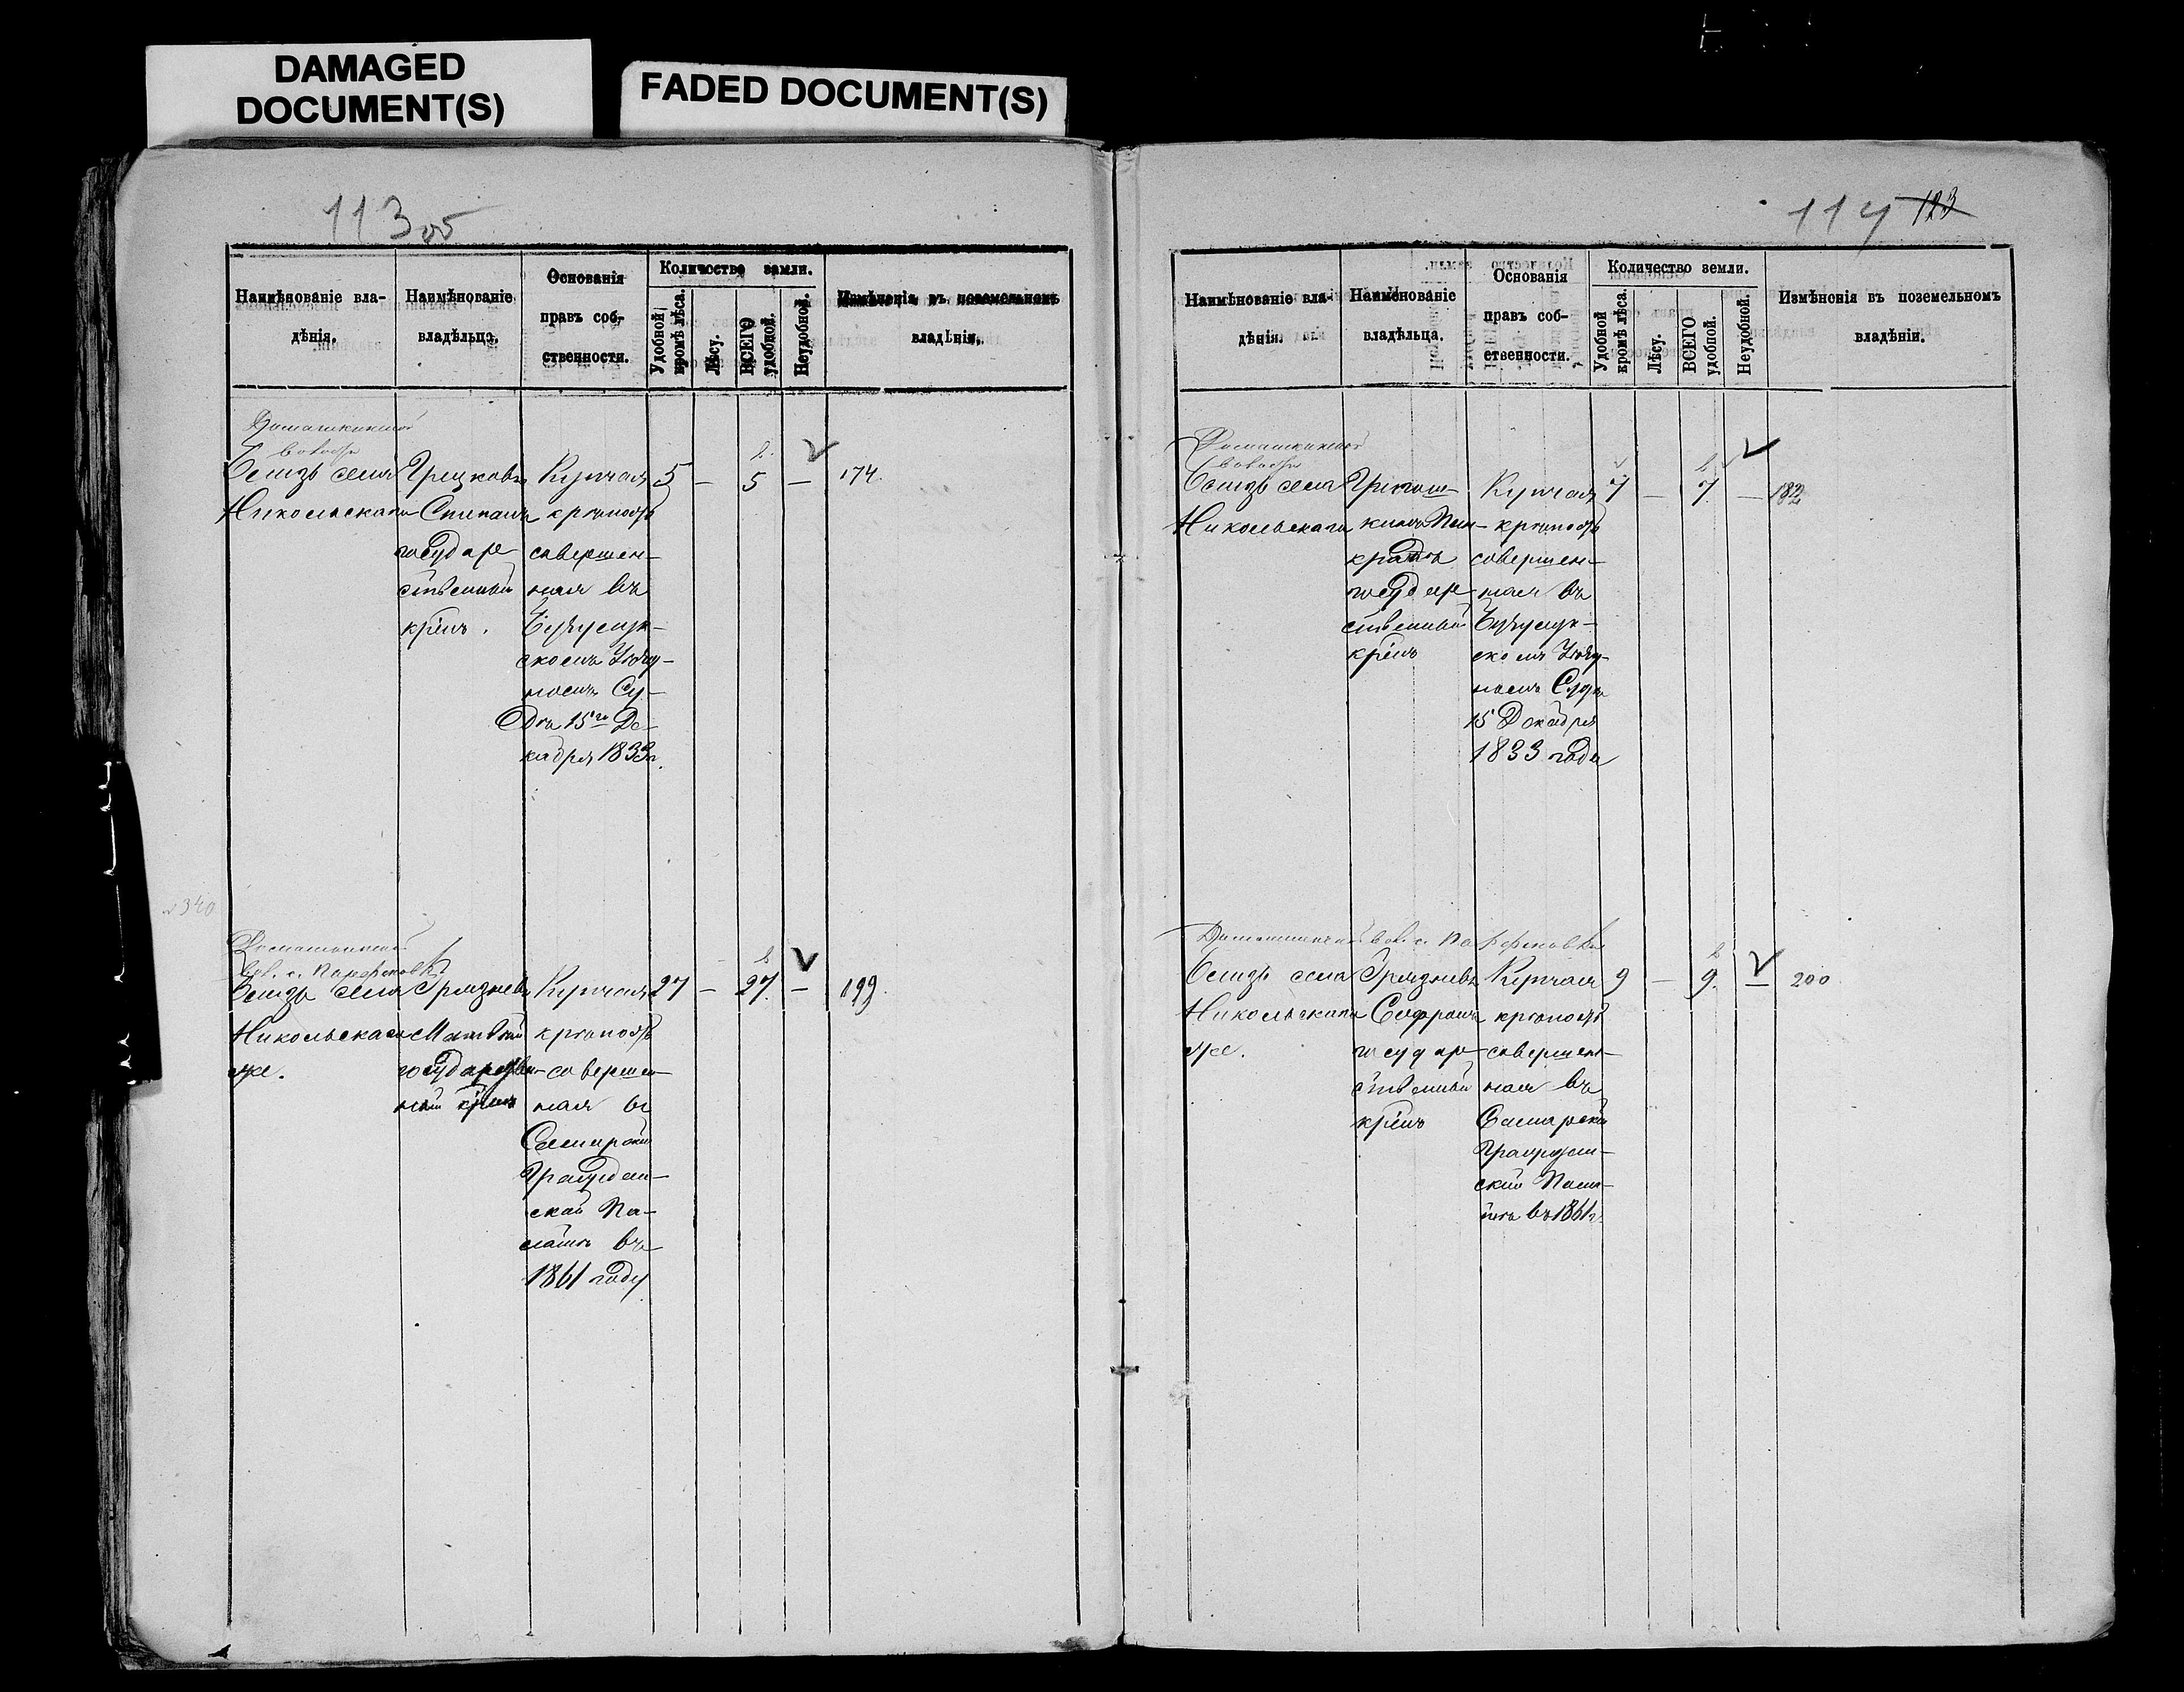 DAMAGED
DOCUMENT(S)
FADED DOCUMENT(S)
113 об
Наимѣнованіе вла-
дѣнія.
Наимѣнованіе
владѣльца.
Основанія
правъ соб-
ственности.
Количество земли.
Удобной
кромѣ лѣса.
Лѣсу.
ВСЕГО
удобной.
Неудобной.
Измѣненія въ поземельномъ
владѣніи.
Домашкинской
волости
Близь села
Никольскаго
Грецковъ
Степанъ
государ
ственный
кр-инъ.
Купчая
крѣпость
совершен-
ная въ
Бузулук-
скомъ Уѣзд-
номъ Су-
дѣ 15го Де-
кабря 1833г.
5 — 5 — 174.
№340
Домашкинской
вол. с. Парфеновки
Близь села
Никольскаго
же.
Грязневъ
Матвѣй
государствен-
ный кр-инъ
Купчая
крѣпость
совершен
ная въ
Самарской
Граждан-
ской Па-
латѣ въ
1861 году
27 — 27. — 199.
114 123
Наимѣнованіе вла-
дѣнія.
Наимѣнованіе
владѣльца.
Основанія
правъ соб-
ственности.
Количество земли.
Удобной
кромѣ лѣса.
Лѣсу.
ВСЕГО
удобной.
Неудобной.
Измѣненія въ поземельномъ
владѣніи.
Домашкинской
волости
Близь села
Никольскаго
кратъ
государ
ственный
кр-инъ
Купчая
крѣпость
совершен-
ная въ
Бузулук-
скомъ Уѣзд-
номъ Судѣ
15 Декабря
1833 года
7 — 7. — 182
Домашкинской вол. с. Парфеновки
Близь села
Никольскаго
же.
Грязневъ
Софронъ
государ-
ственный
кр-инъ
Купчая
крѣпость
совершен-
ная въ
Самарской
Граждан-
ской Пала-
тѣ въ 1861г.
9 — 9. — 200